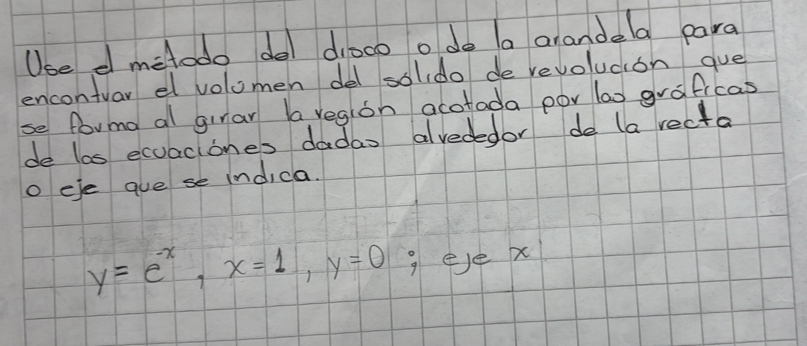 Use el método del disco o de la arandela para
encontrar el volumen del sólido de revolución que
se forma al girar la región acotada por las gráficas
de las ecuaciónes dadas alrededor de la recta
o eje que se indica.
y = e⁻ˣ, x = 1, y = 0 ; eje x